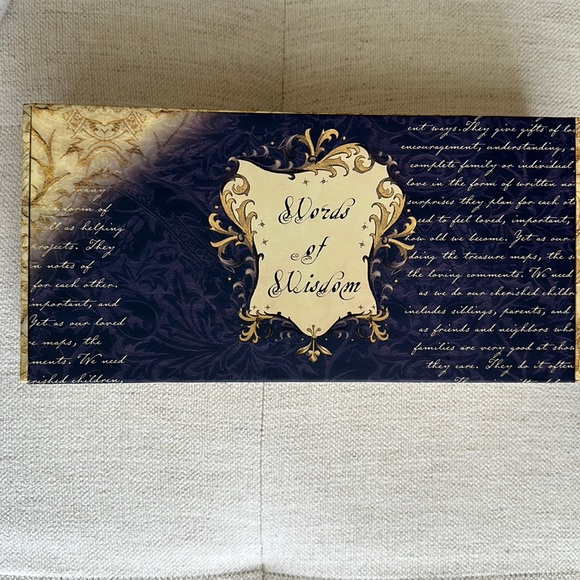 Words
of
Wisdom
many
form of
ll as helping
projects. They
n notes of
for each other.
mportant, and
Yet as our loved
e maps, the
mments. We need
erished children,
ent ways. They give gifts of lov
encouragement, understanding, a
complete family or individual
love in the form of written no
surprises they plan for each ot
eed to feel loved, important,
how old we become. Yet as our
doing the treasure maps, the s
the loving comments. We need
as we do our cherished childr
includes siblings, parents, and
as friends and neighbors who
families are very good at show
they care. They do it often